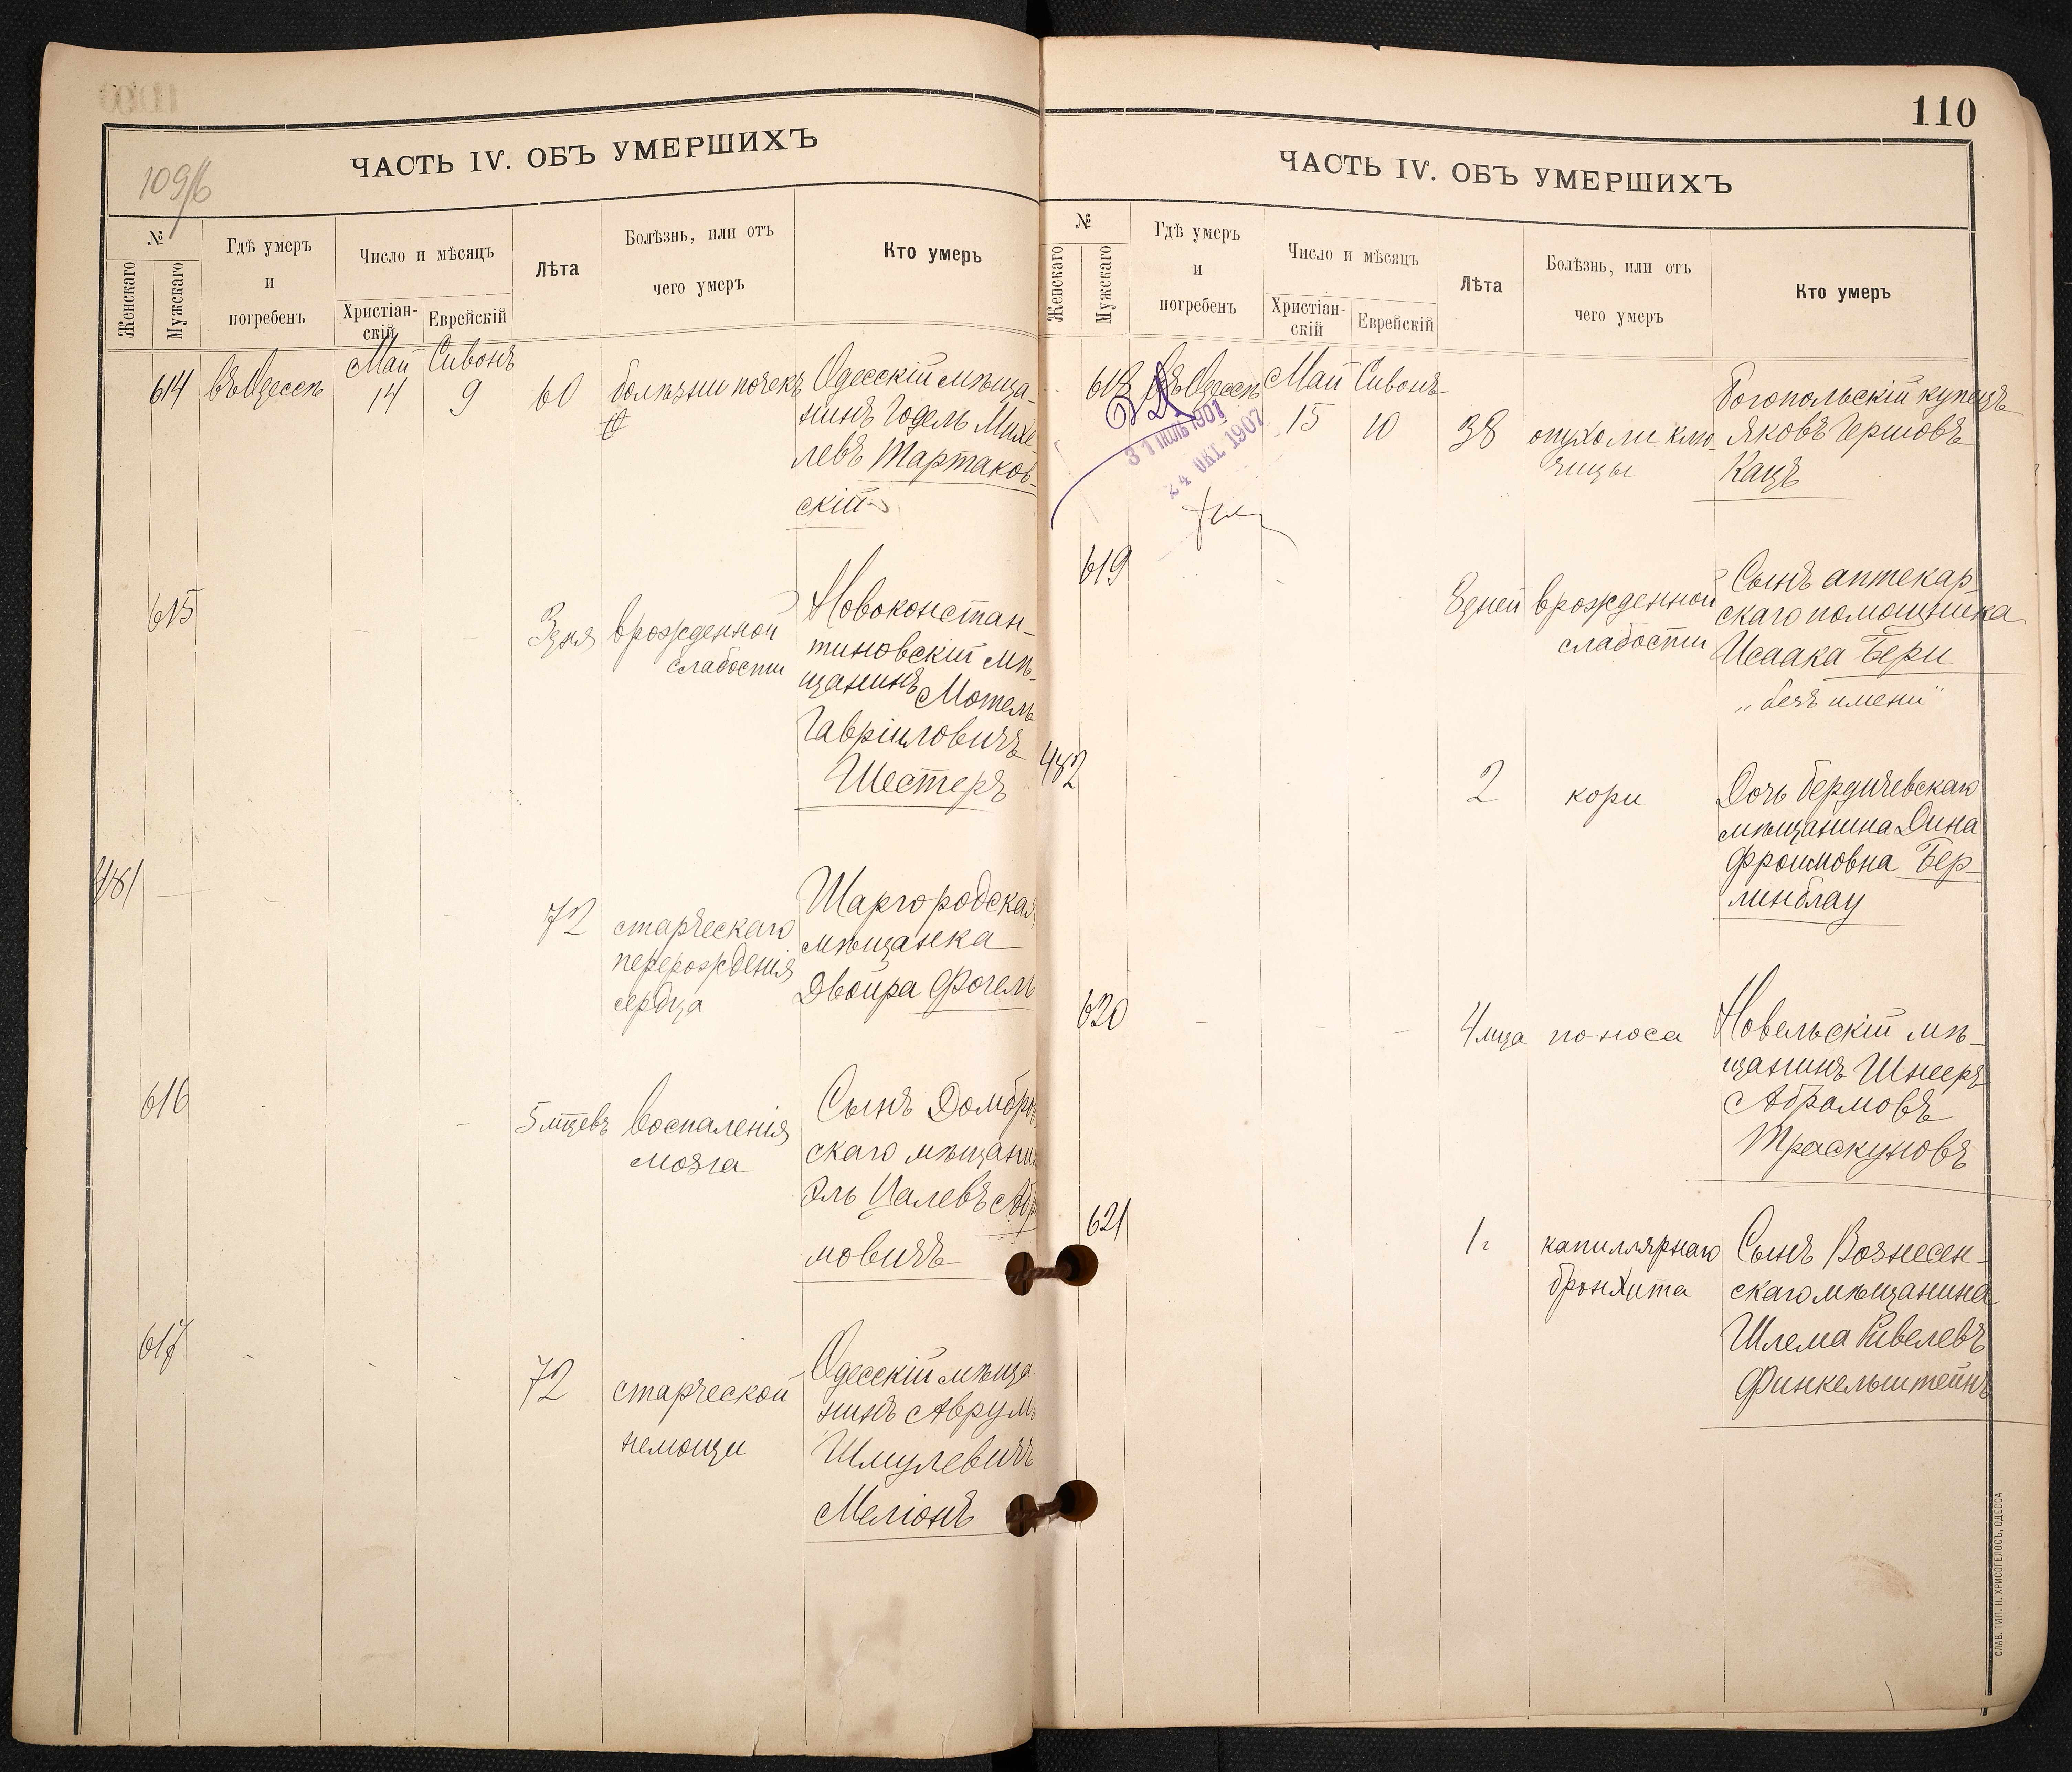 109/б
ЧАСТЬ IV. ОБЪ УМЕРШИХЪ
№
Женскаго
Мужскаго
Гдѣ умеръ
и
погребенъ
Число и мѣсяцъ
Христіан-
скій
Еврейскій
Лѣта
Болѣзнь, или отъ
чего умеръ
Кто умеръ
Май Сивонъ
614 въ Одессѣ 14 9 60 болѣзни почекъ Одесскій мѣща-
нинъ Годель Михе
левъ Тартаков-
скій
615 3 дня врожденной Новоконстан-
слабости тиновскій мѣ-
щанинъ Мотель
Гавріиловичъ
Шестеръ
481 72 старческаго Шаргородская
перерожденія мѣщанка
сердца Двойра Фогель
616 5 мцевъ воспаленія Сынъ Домбро
мозга скаго мѣщанин
Эль Цалевъ Абр
мовичъ
617 72 старческой Одесскій мѣща
немощи нинъ Аврумъ
Шмулевичъ
Меліонъ
110
ЧАСТЬ IV. ОБЪ УМЕРШИХЪ
№
Женскаго
Мужскаго
Гдѣ умеръ
и
погребенъ
Число и мѣсяцъ
Христіан-
скій
Еврейскій
Лѣта
Болѣзнь, или отъ
чего умеръ
Кто умеръ
618 въ Одессѣ Май Сивонъ
31 ІЮЛЬ 1901
24 ОКТ. 1907
15 10 38 опухоли клю- Богопольскій купецъ
чицы Яковъ Гершовъ
Кацъ
619 8 дней врожденной Сынъ аптекар-
слабости скаго помощника
Исаака Бери
„безъ имени"
482 2 кори Дочь Бердичевскаго
мѣщанина Дина
Фроимовна Бер-
линблау
620 4 мца поноса Новельскій мѣ-
щанинъ Шнееръ
Абрамовъ
Траскуновъ
621 1 г капиллярнаго Сынъ Вознесен-
бронхита скаго мѣщанина
Шлема Кивелевъ
Финкельштейнъ
СЛАВ. ТИП. Н. ХРИСОГЕЛОСЪ, ОДЕССА